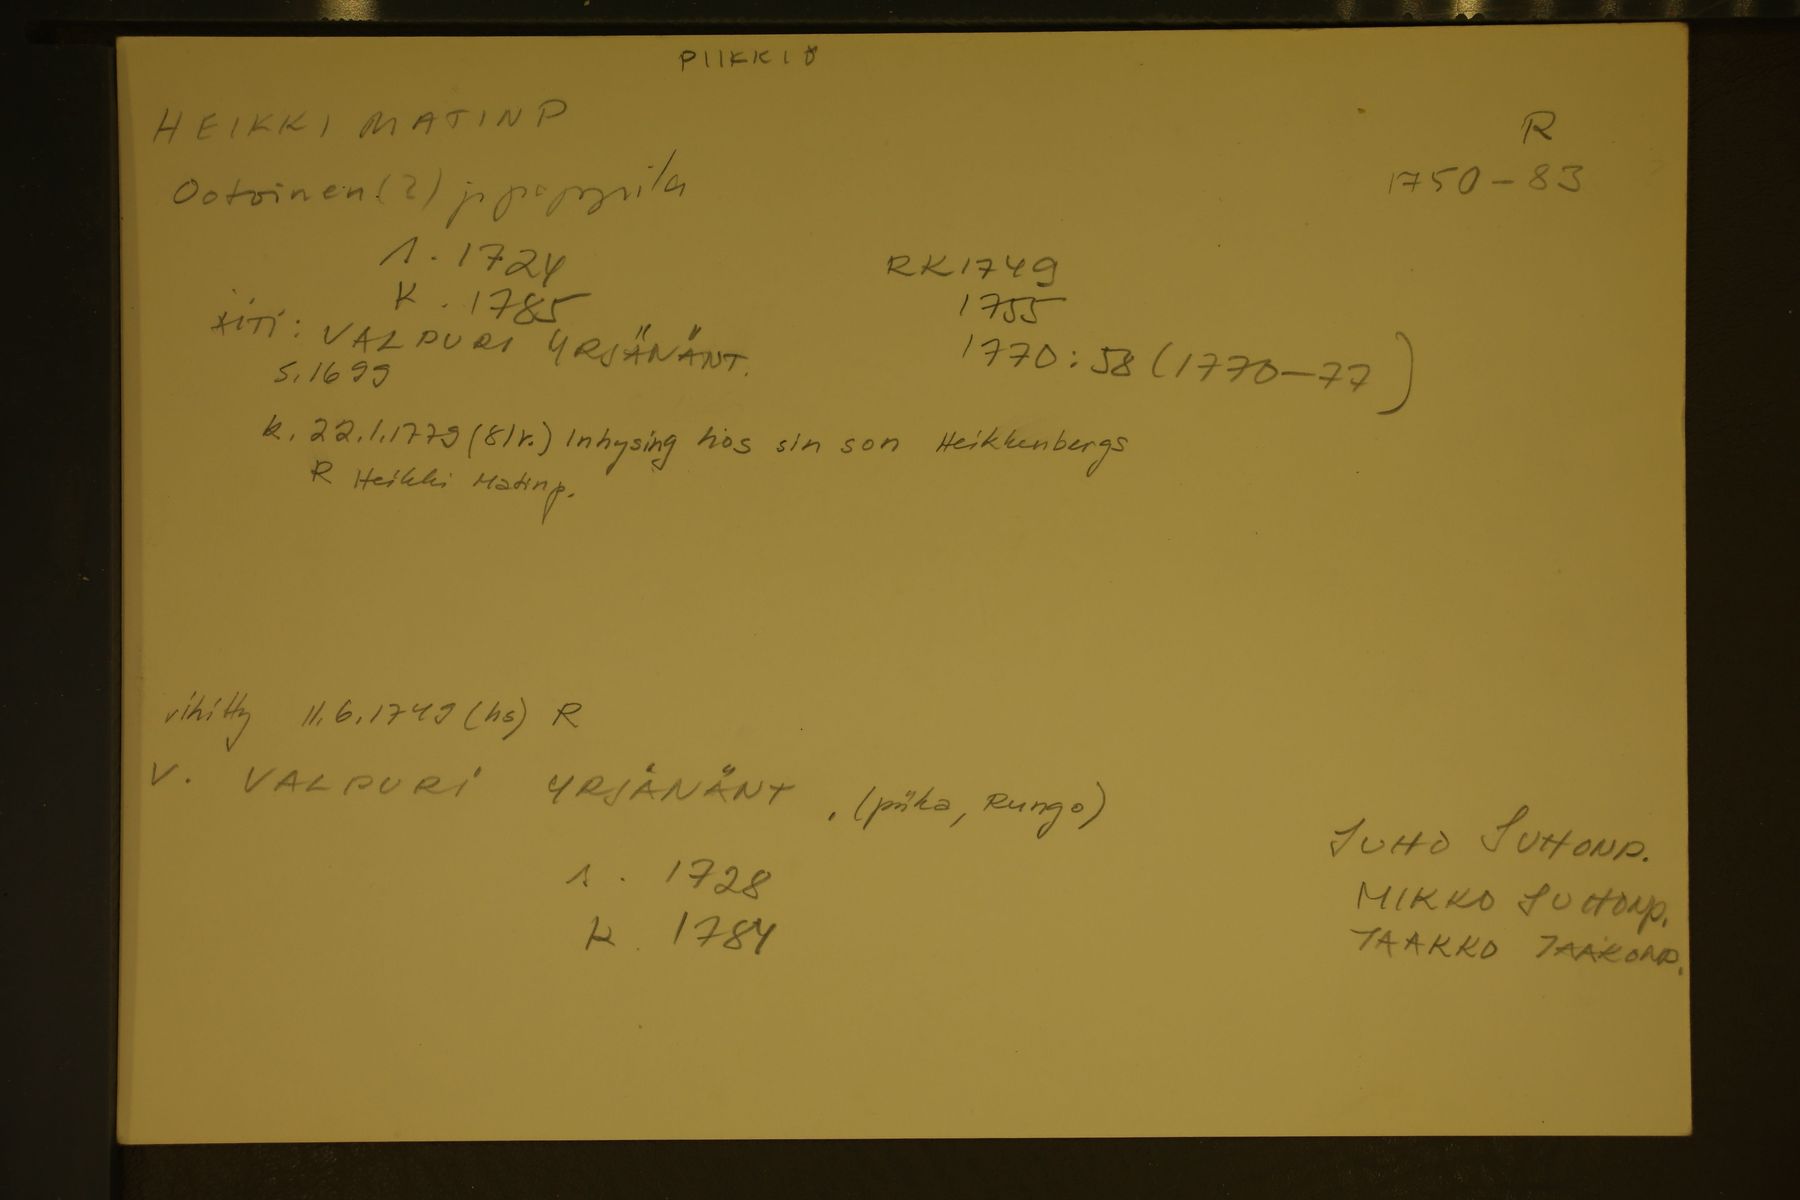 PIIKKIÖ
HEIKKI MATINP
R
1750-83
s. 1724
k. 1785
RK 1749
1755
1770:58 (1770-77)
ÄITI: VALPURI YRJÄNÄNT.
s. 1699
k. 22.1.1779 (81v.) Inhysing hos sin son Heikkenbergs
R Heikki Matinp.
vihitty 11.6.1749 (hs) R
V. VALPURI YRJÄNÄNT. (piika, Rungo)
s. 1728
k. 1784
JUHO JUHONP.
MIKKO JUHONP.
JAAKKO JAAKONP.